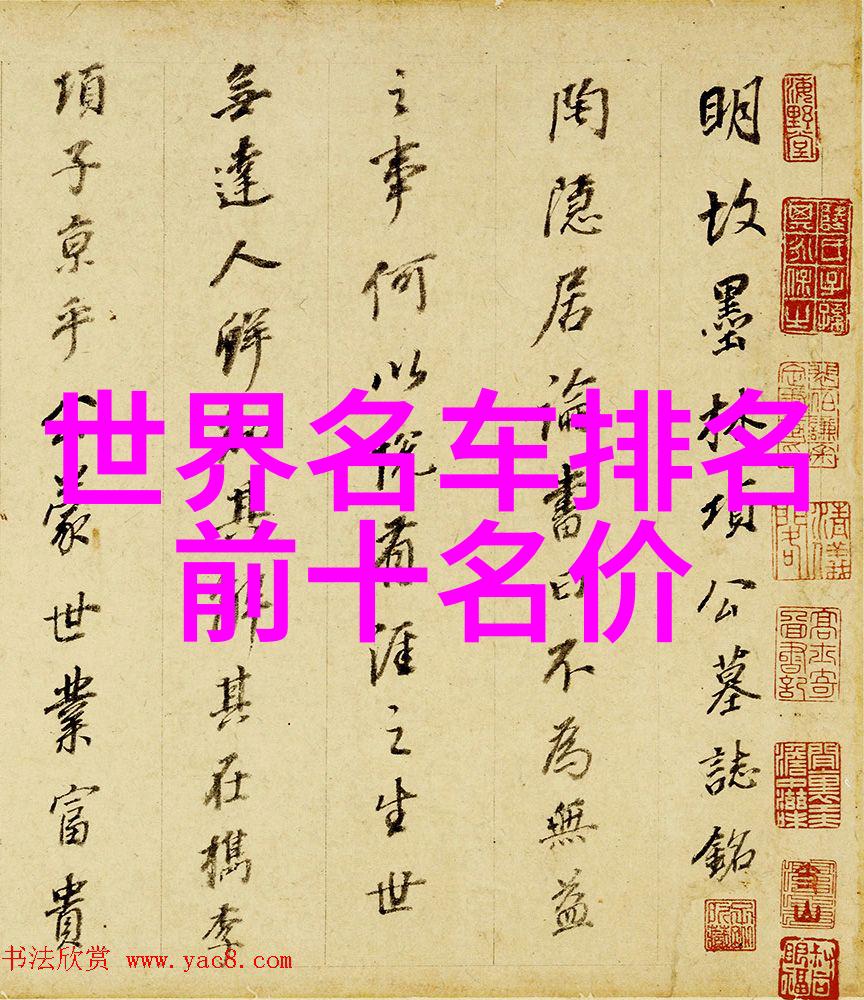 世界名车排名
前十名价
海野堂
明故墨林項公墓誌銘
陶隱居論書曰不為無益
之事何以悅有涯之生世
無達人鮮知其解其在檇李
項子京乎公蒙世業富貴
书法欣赏 www.yac8.com